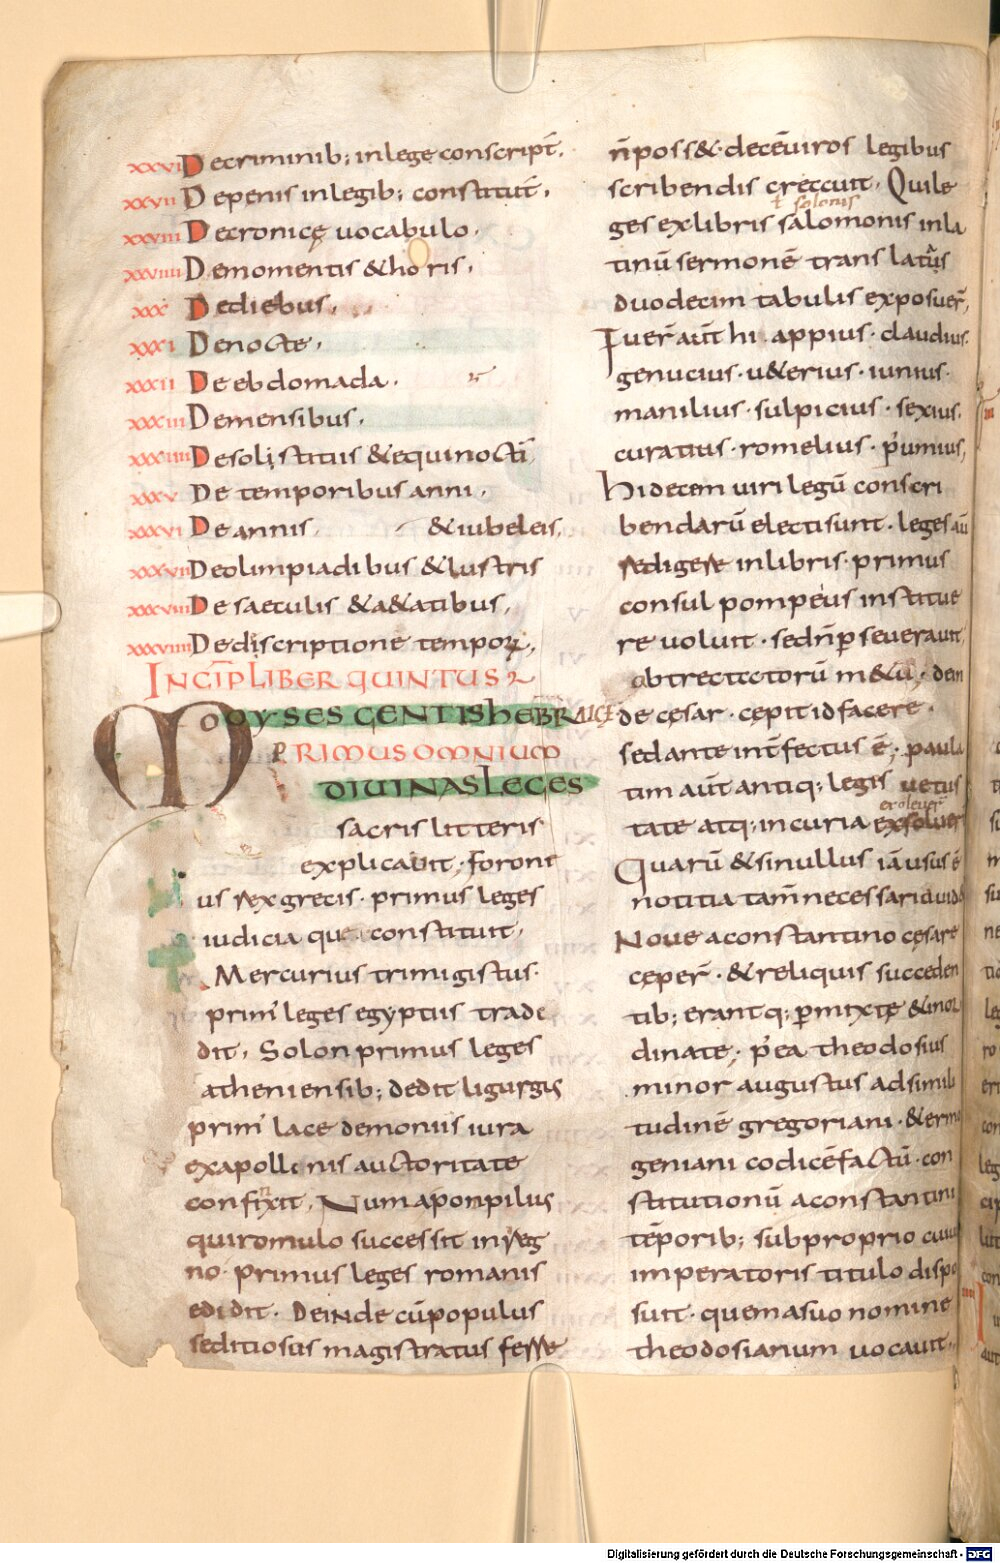 xxvi Decriminib; inlege conscript̄.
xxvii Depenis inlegib; constitut̄.
xxviii Decronicę uocabulo.
xxviiii Demomentis & horis.
xxx Dediebus.
xxxi Denocte.
xxxii Deebdomada.
xxxiii Demensibus.
xxxiiii Desolistitiis & equinocti
xxxv De temporibus anni.
xxxvi Deannis & iubeleis.
xxxvii Deolimpiadibus & lustris
xxxviii Desaeculis & a&atibus.
xxxviiii Dediscriptione tempoꝝ.
INCIP̄ LIBER QUINTUS
MOYSES GENTIS HEBRAICE
PRIMUS OMNIUM
DIUINAS LEGES
sacris litteris
explicauit. foron&
us rex grecis. primus leges
iudicia que constituit.
Mercurius trimigistus.
prim' leges egyptiis trade
dit. Solon primus leges
atheniensib; dedit ligurgus
prim' lacedemoniis iura
exapollinis auctoritate
confinxit. Numa ponpilus
quiromulo successit inreg
no. primus leges romanis
edidit. Deinde cū populus
seditiosus magistratus ferre
n̄ poss&. decēuiros legibus
scribendis creauit. Quile
ł solonis
ges exlibris salomonis inla
tinū sermonē translatis
duodecim tabulis exposuer̄,
Fuer̄ aut̄ hi. appius. claudius.
genucius. u&erius. iunius.
manilius. sulpicius. sexius.
curatius. romelius. p̄umius,
hidecem uiri legū conscri
bendarū electi sunt. leges aū
redigere inlibris. primus
consul pompeius institue
re uoluit. sedn̄ perseuerauit
obtrectatorū m&u; dein
de cęsar. cępit id facere.
sed ante int̄fectus ē; paula
tim aut̄ antiq; leges uetus
exoleuer̄
tate atq; incuria exsoluer̄
Quarū & si nullus iā usus ē
notitia tam̄ necessaria uid
Noue aconstantino cęsare
ceper̄. & reliquis succeden
tib; erantq; permixtę & inor
dinate; p'ea theodosius
minor augustus adsimili
tudinē gregoriani. & erm
geniani codicē factū. con
stitutionū aconstantini
tēporib; subproprio cuius
imperatoris titulo dispo
suit. quem asuo nomine
theodosianum uocauit.
Digitalisierung gefördert durch die Deutsche Forschungsgemeinschaft - DFG